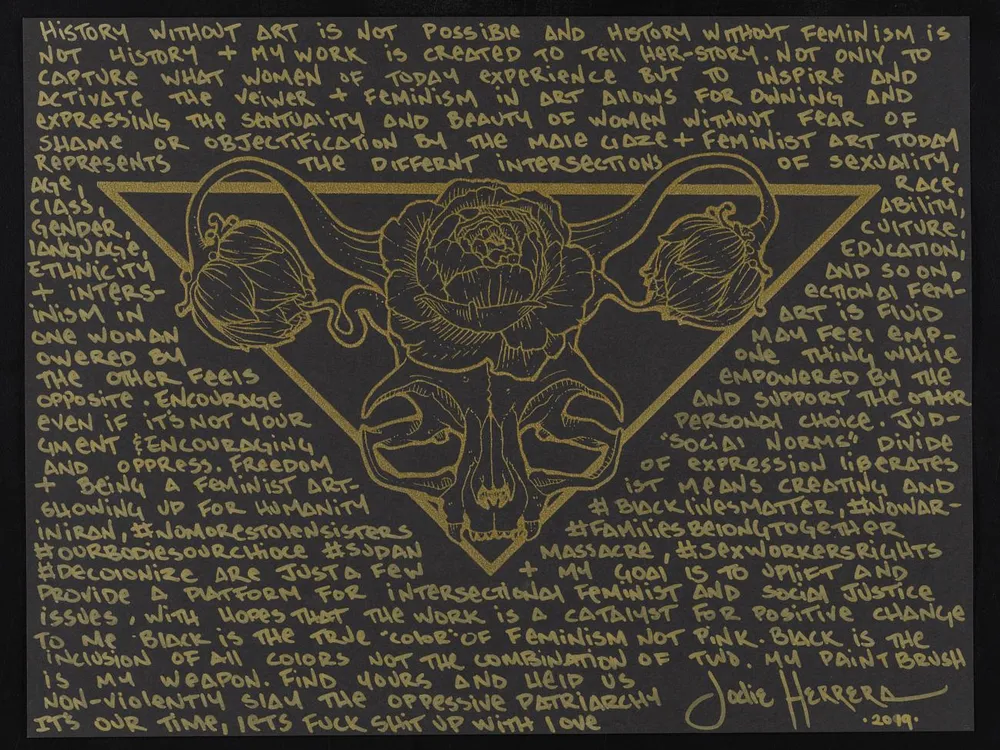 HISTORY WITHOUT ART IS NOT POSSIBLE AND HISTORY WITHOUT FEMINISM IS
NOT HISTORY + MY WORK IS CREATED TO TELL HER-STORY. NOT ONLY TO
CAPTURE WHAT WOMEN OF TODAY EXPERIENCE BUT TO INSPIRE AND
ACTIVATE THE VEIWER + FEMINISM IN ART ALLOWS FOR OWNING AND
EXPRESSING THE SENTUALITY AND BEAUTY OF WOMEN WITHOUT FEAR OF
SHAME OR OBJECTIFICATION BY THE MALE GAZE + FEMINIST ART TODAY
REPRESENTS THE DIFFERNT INTERSECTIONS OF SEXUALITY,
AGE, RACE,
CLASS, ABILITY,
GENDER, CULTURE,
LANGUAGE, EDUCATION,
ETHNICITY AND SO ON.
+ INTERS- ECTIONAL FEM-
INISM IN ART IS FLUID
ONE WOMAN MAY FEEL EMP-
OWERED BY ONE THING WHILE
THE OTHER FEELS EMPOWERED BY THE
OPPOSITE. ENCOURAGE AND SUPPORT THE OTHER
EVEN IF IT'S NOT YOUR PERSONAL CHOICE. JUD-
GMENT & ENCOURAGING "SOCIAL NORMS" DIVIDE
AND OPPRESS. FREEDOM OF EXPRESSION LIBERATES
+ BEING A FEMINIST ART- IST MEANS CREATING AND
SHOWING UP FOR HUMANITY #BLACKLIVESMATTER, #NOWAR-
INIRAN, #NOMORESTOLENSISTERS #FAMILIESBELONGTOGETHER
#OURBODIESOURCHIOCE #SUDAN MASSACRE, #SEXWORKERSRIGHTS
#DECOLONIZE ARE JUST A FEW + MY GOAL IS TO UPLIFT AND
PROVIDE A PLATFORM FOR INTERSECTIONAL FEMINIST AND SOCIAL JUSTICE
ISSUES, WITH HOPES THAT THE WORK IS A CATALYST FOR POSITIVE CHANGE
TO ME BLACK IS THE TRUE "COLOR" OF FEMINISM NOT PINK. BLACK IS THE
INCLUSION OF ALL COLORS NOT THE COMBINATION OF TWO. MY PAINT BRUSH
IS MY WEAPON. FIND YOURS AND HELP US
NON-VIOLENTLY SLAY THE OPPRESSIVE PATRIARCHY
IT'S OUR TIME, LETS FUCK SHIT UP WITH LOVE
Jodie HERRERA
·2019·